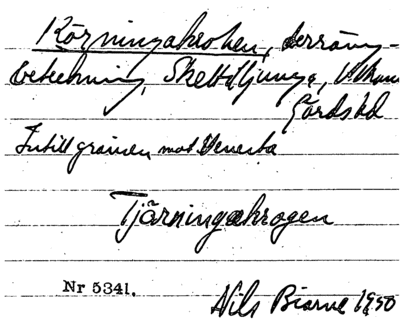 Körningakroken, terräng-
beteckning, Skettiljunga, V
Gärds hd
Intill gränsen mot Venesta
Tjärningakrogen
Nr 5341.
Nils Biarne 1950